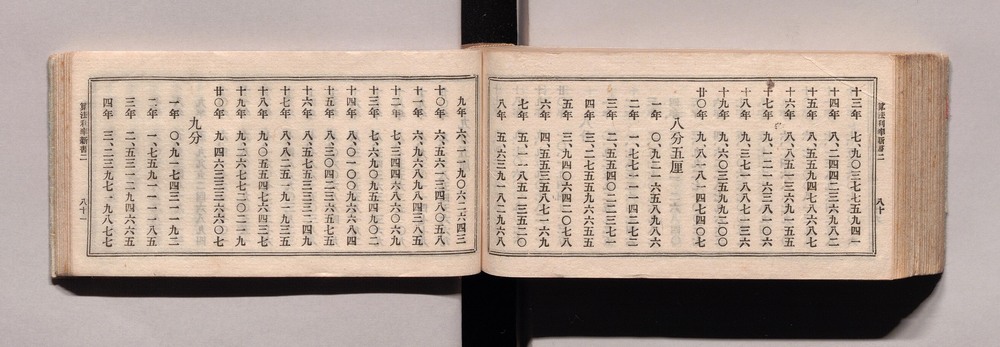 算法利率新書二　八十
十三年　七、九〇三七七五九四一
十四年　八、二四四二三六九八二
十五年　八、五五九四七八六八七
十六年　八、八五一三六九一五五
十七年　九、一二一六三八一〇六
十八年　九、三七一八八七一三六
十九年　九、六〇三五九九二〇〇
廿〇年　九、八一八一四七四〇七
八分五厘
一年　〇、九二一六五八九八六
二年　一、七七一一一四二七三
三年　二、五五四〇二二三七一
四年　三、二七五五九六六五五
五年　三、九四〇六四二〇七八
六年　四、五五三五八七一六九
七年　五、一一八五一三五二〇
八年　五、六三九一八二九六八
九年　六、一一九〇六二六四三
十〇年　六、五六一三四八〇五八
十一年　六、九六八九八四三八五
十二年　七、三四四六八六〇六九
十三年　七、六九〇九五四九〇二
十四年　八、〇一〇〇九六六八四
十五年　八、三〇四二三六五七五
十六年　八、五七五三三三二四九
十七年　八、八二五一九一九三五
十八年　九、〇五五四七六四三七
十九年　九、二六七七二〇二一九
廿〇年　九、四六三三三六六〇〇
九分
一年　〇、九一七四三一一九二
二年　一、七五九一一一一八五
三年　二、五三一二九四六六五
四年　三、二三九七一九八七七
算法利率新書二　八十一